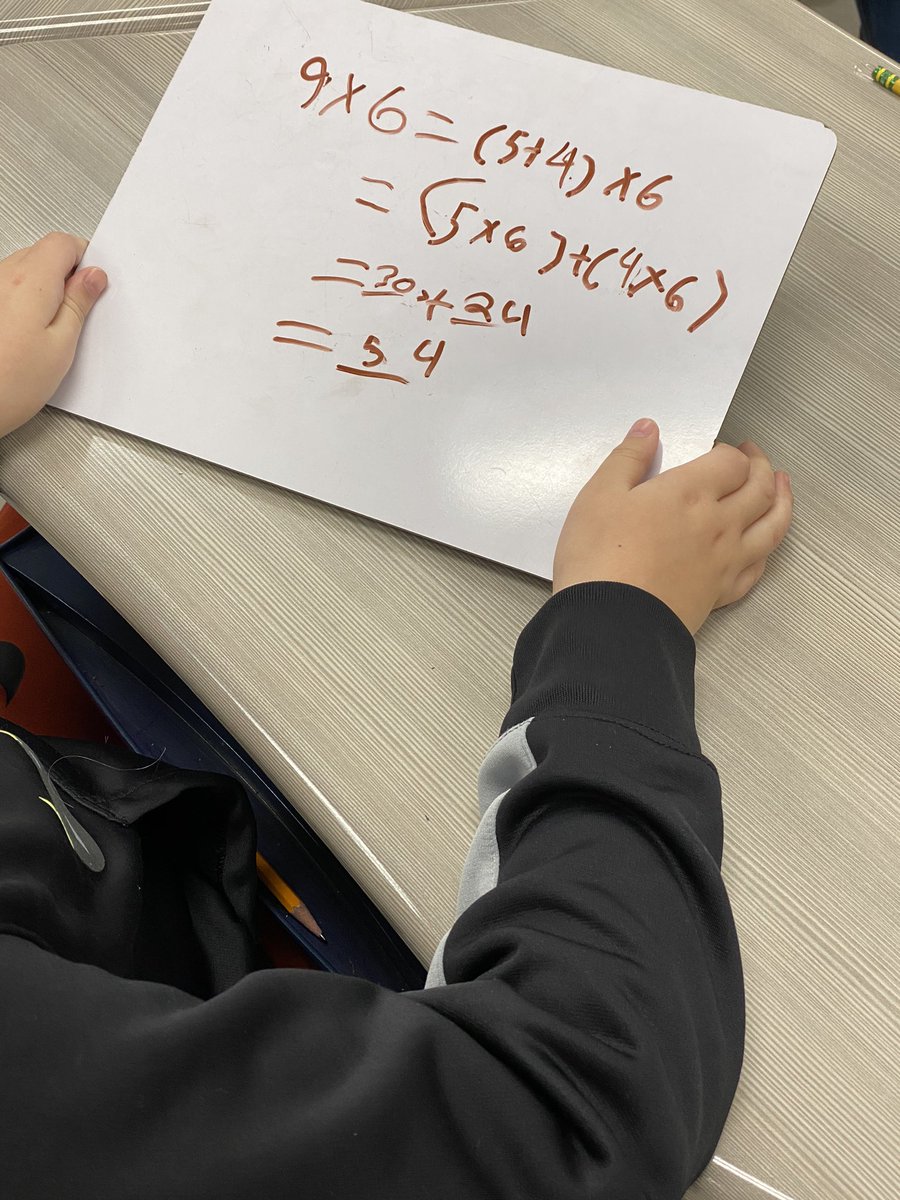 9×6=(5+4)×6
=(5×6)+(4×6)
=30+24
=54